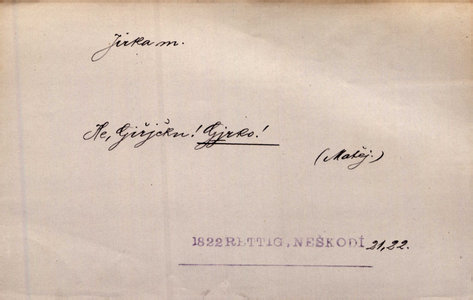 Jirka m.
Ne, Giřjčku! Gjrko!
(Matěj.)
1822 RETTIG, NEŠKODÍ 21, 22.